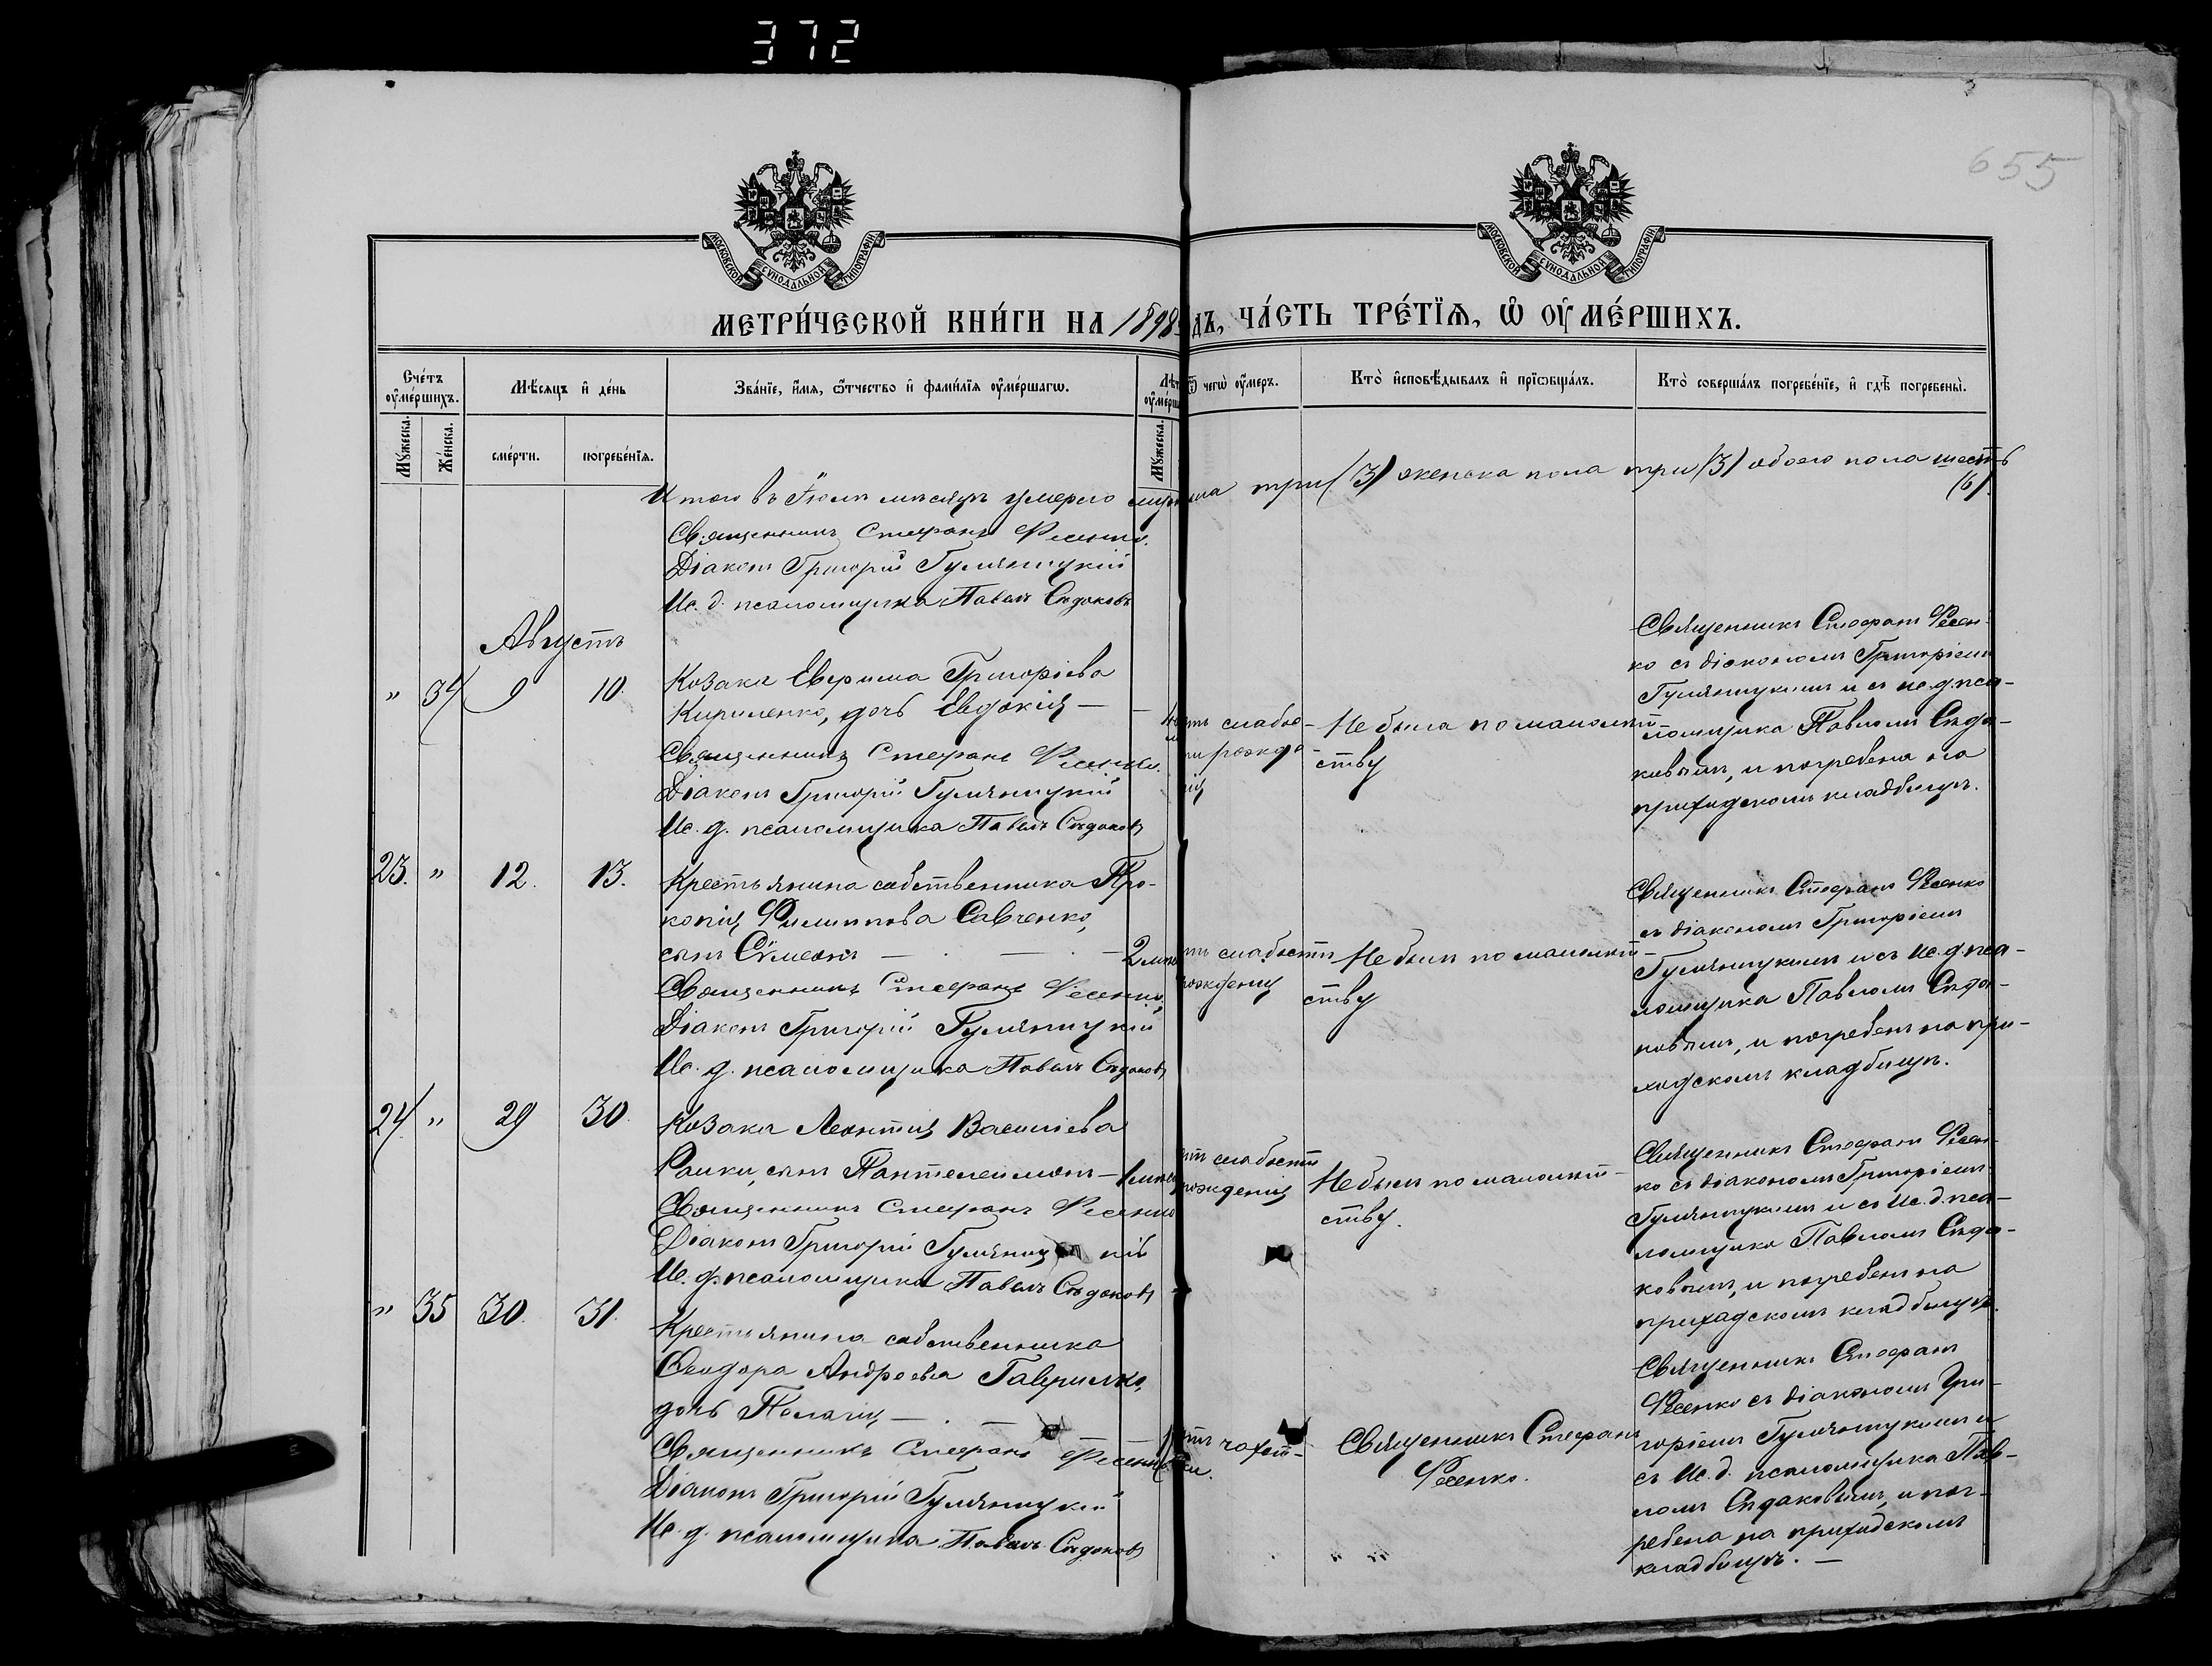 372
655
МОСКОВСКОЙ СУНОДАЛЬНОЙ ТИПОГРАФІИ
МОСКОВСКОЙ СУНОДАЛЬНОЙ ТИПОГРАФІИ
МЕТРИ́ЧЕСКОЙ КНИ́ГИ НА 1898 ДЪ, ЧА́СТЬ ТРЕ́ТЇѦ, Ѡ ОУМЕ́РШИХЪ.
Сче́тъ оуме́ршихъ.
Мꙋжеска.
Же́нска.
Мѣ́сяцъ и де́нь
сме́рти.
погребе́нїя.
Зва́нїе, и́мя, ѻ́тчество и фами́лїя оуме́ршагѡ.
Мꙋжеска.
Ѿ чегѡ̀ оу́меръ.
Кто̀ исповѣ́дывалъ и прїѡбща́лъ.
Кто̀ соверша́лъ погребе́нїе, и гдѣ̀ погребены̀.
Итого въ Іюлѣ мѣсяцѣ умерло мужеска три (3) женска пола три (3) обоего пола шесть (6).
Священникъ Стефанъ Фесенко.
Діаконъ Григорій Гумяницкій
Ис. д. псаломщика Павелъ Сѣдаковъ
Августъ
" 34 9 10.
Козака Евфима Григоріева
Кириленко, дочь Евдокія —
Священникъ Стефанъ Фесенко.
Діаконъ Григорій Гумяницкій
Ис. д. псаломщика Павелъ Сѣдаковъ
тъ слабос-
ри рожде-
ія
Не была по малолѣт-
ству
Священникъ Стефанъ Фесен-
ко съ діакономъ Григоріемъ
Гумяницкимъ и съ ис. д. пса-
ломщика Павломъ Сѣда-
ковымъ, и погребена на
приходскомъ кладбищѣ.
23. " 12. 13.
Крестьянина собственника Про-
копія Филиппова Савченко,
сынъ Сѵмеонъ — . — . — 2 мѣ
Священникъ Стефанъ Фесенко
Діаконъ Григорій Гумяницкій
Ис. д. псаломщика Павелъ Сѣдаковъ
тъ слабости
рожденія
Не былъ по малолѣт-
ству
Священникъ Стефанъ Фесенко
съ діакономъ Григоріемъ
Гумяницкимъ и съ Ис. д. пса-
ломщика Павломъ Сѣда-
ковымъ, и погребенъ на при-
ходскомъ кладбищѣ.
24. " 29 30
Козака Леонтія Васильева
сынъ Пантелеймонъ — 1 мѣ
Священникъ Стефанъ Фесенко
Діаконъ Григорій Гумяницкій
Ис. д. псаломщика Павелъ Сѣдаковъ
тъ слабости
рожденія
Не былъ по малолѣт-
ству.
Священникъ Стефанъ Фесен-
ко съ діакономъ Григоріемъ
Гумяницкимъ и съ Ис. д. пса-
ломщика Павломъ Сѣда-
ковымъ, и погребенъ на
приходскомъ кладбищѣ.
" 35 30. 31.
Крестьянина собственника
Ѳеодора Андреева Гаврилко,
дочь Пелагія — . —
Священникъ Стефанъ Фесенко
Діаконъ Григорій Гумяницкій
Ис. д. псаломщика Павелъ Сѣдаковъ
тъ чахот-
ки.
Священникъ Стефанъ
Фесенко.
Священникъ Стефанъ
Фесенко съ діакономъ Гри-
горіемъ Гумяницкимъ и
съ Ис. д. псаломщика Пав-
ломъ Сѣдаковымъ, и пог-
ребена на приходскомъ
кладбищѣ. —